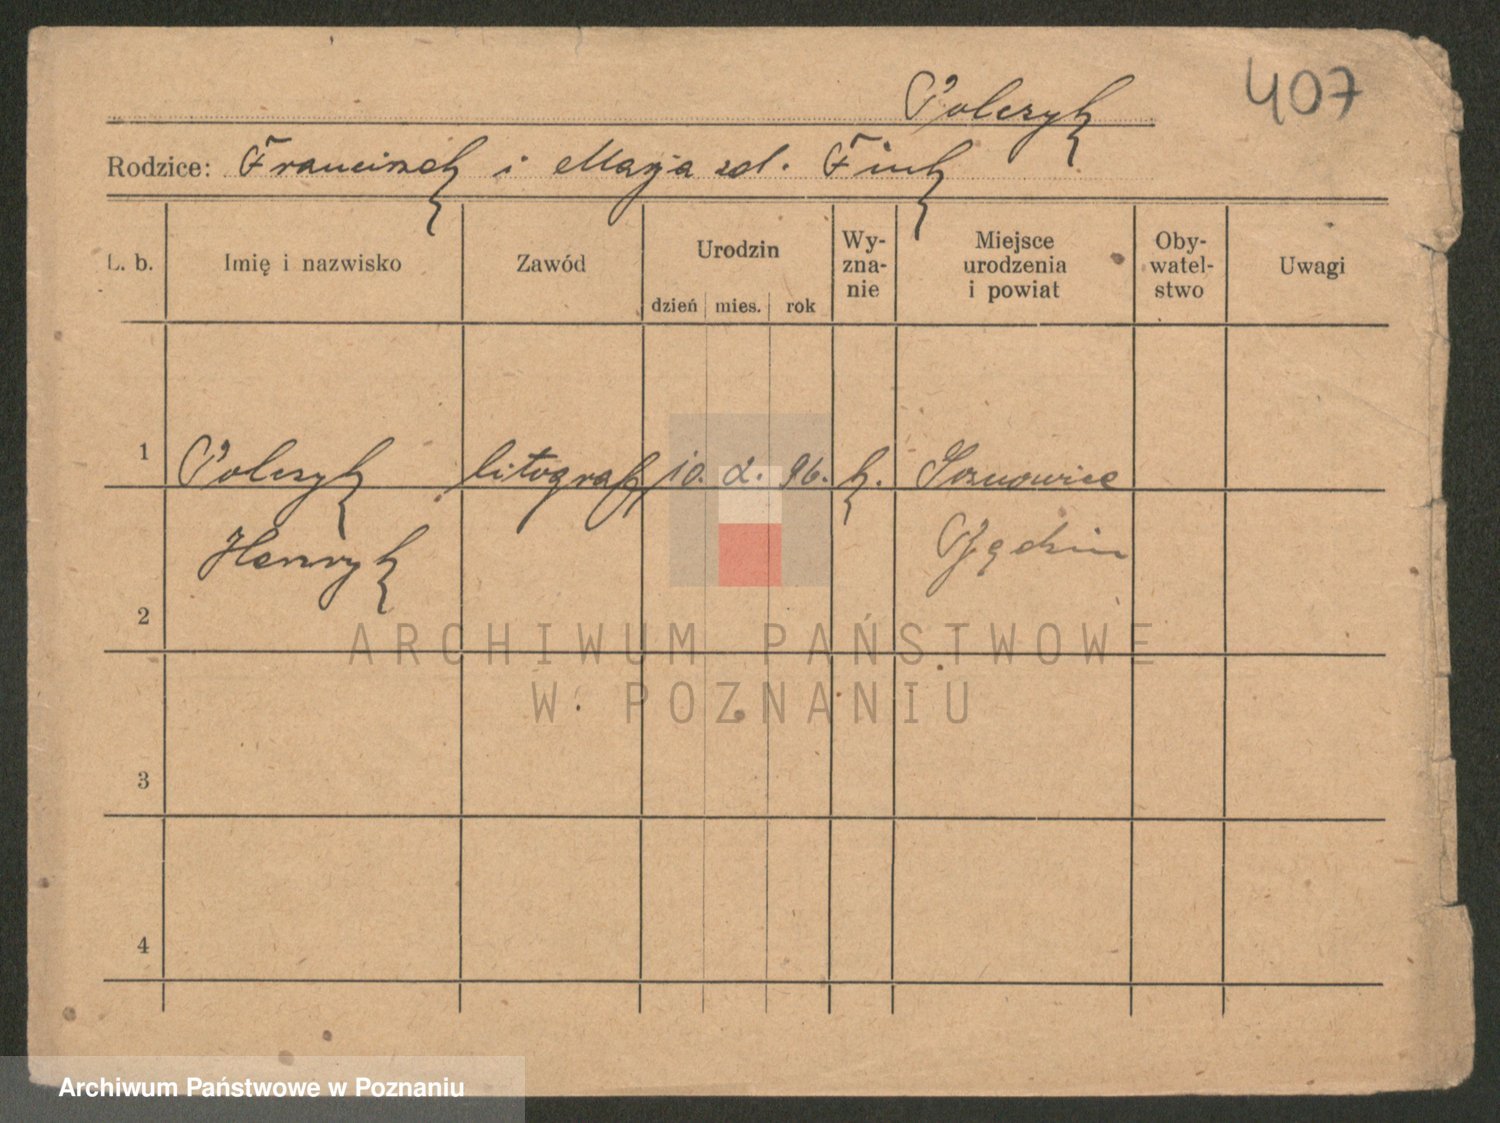 407
Polczyk
Rodzice: Franciszek i Marja zd. Fink
L. b. Imię i nazwisko Zawód Urodzin dzień mies. rok Wy-zna-nie Miejsce urodzenia i powiat Oby-watel-stwo Uwagi
1 Polczyk litograf 10. 2. 96. k. Sosnowice
Henryk Będzin
2
3
4
ARCHIWUM PAŃSTWOWE
W POZNANIU
Archiwum Państwowe w Poznaniu